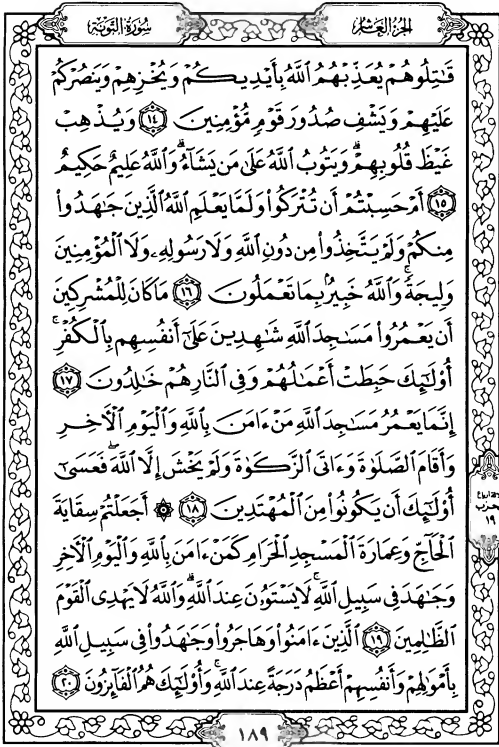 الجزء العاشر
سورة التوبة
قَٰتِلُوهُمْ يُعَذِّبْهُمُ ٱللَّهُ بِأَيْدِيكُمْ وَيُخْزِهِمْ وَيَنصُرْكُمْ
عَلَيْهِمْ وَيَشْفِ صُدُورَ قَوْمٍ مُّؤْمِنِينَ ١٤ وَيُذْهِبْ
غَيْظَ قُلُوبِهِمْ ۗ وَيَتُوبُ ٱللَّهُ عَلَىٰ مَن يَشَآءُ ۗ وَٱللَّهُ عَلِيمٌ حَكِيمٌ
١٥ أَمْ حَسِبْتُمْ أَن تُتْرَكُوا۟ وَلَمَّا يَعْلَمِ ٱللَّهُ ٱلَّذِينَ جَٰهَدُوا۟
مِنكُمْ وَلَمْ يَتَّخِذُوا۟ مِن دُونِ ٱللَّهِ وَلَا رَسُولِهِۦ وَلَا ٱلْمُؤْمِنِينَ
وَلِيجَةً ۚ وَٱللَّهُ خَبِيرٌۢ بِمَا تَعْمَلُونَ ١٦ مَا كَانَ لِلْمُشْرِكِينَ
أَن يَعْمُرُوا۟ مَسَٰجِدَ ٱللَّهِ شَٰهِدِينَ عَلَىٰٓ أَنفُسِهِم بِٱلْكُفْرِ ۚ
أُو۟لَٰٓئِكَ حَبِطَتْ أَعْمَٰلُهُمْ وَفِى ٱلنَّارِ هُمْ خَٰلِدُونَ ١٧
إِنَّمَا يَعْمُرُ مَسَٰجِدَ ٱللَّهِ مَنْ ءَامَنَ بِٱللَّهِ وَٱلْيَوْمِ ٱلْءَاخِرِ
وَأَقَامَ ٱلصَّلَوٰةَ وَءَاتَى ٱلزَّكَوٰةَ وَلَمْ يَخْشَ إِلَّا ٱللَّهَ ۖ فَعَسَىٰٓ
أُو۟لَٰٓئِكَ أَن يَكُونُوا۟ مِنَ ٱلْمُهْتَدِينَ ١٨ ۞ أَجَعَلْتُمْ سِقَايَةَ
ٱلْحَآجِّ وَعِمَارَةَ ٱلْمَسْجِدِ ٱلْحَرَامِ كَمَنْ ءَامَنَ بِٱللَّهِ وَٱلْيَوْمِ ٱلْءَاخِرِ
وَجَٰهَدَ فِى سَبِيلِ ٱللَّهِ ۚ لَا يَسْتَوُۥنَ عِندَ ٱللَّهِ ۗ وَٱللَّهُ لَا يَهْدِى ٱلْقَوْمَ
ٱلظَّٰلِمِينَ ١٩ ٱلَّذِينَ ءَامَنُوا۟ وَهَاجَرُوا۟ وَجَٰهَدُوا۟ فِى سَبِيلِ ٱللَّهِ
بِأَمْوَٰلِهِمْ وَأَنفُسِهِمْ أَعْظَمُ دَرَجَةً عِندَ ٱللَّهِ ۚ وَأُو۟لَٰٓئِكَ هُمُ ٱلْفَآئِزُونَ ٢٠
١٨٩